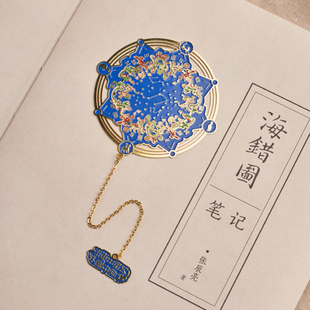 海錯圖
笔记
·张辰亮
著